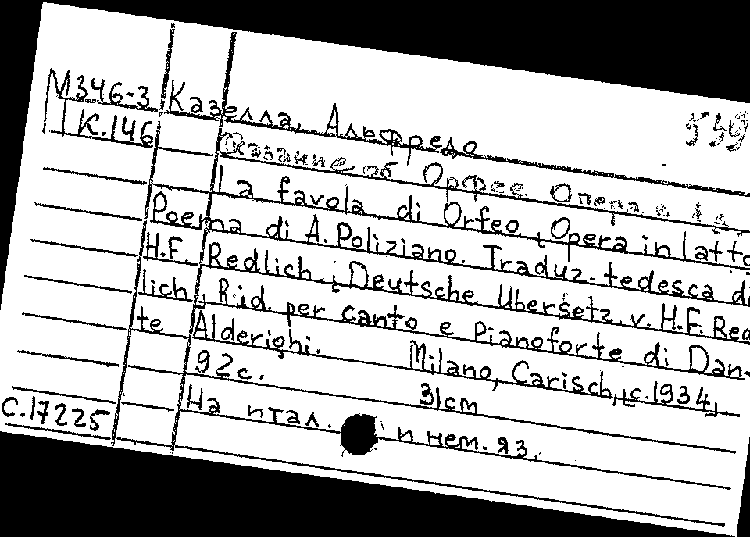 М346-3 Казелла, Альфредо 539
К.146 Сказание об Орфее. Опера в 1 д.
La favola di Orfeo, Opera in 1 atto
Poema di A. Poliziano. Traduz. tedesca di
H.F. Redlich.; Deutsche Übersetz. v. H.F. Red
lich, Rid. per canto e pianoforte di Dan-
te Alderighi. Milano, Carisch, [c.1934]
92с. 31cm
На итал. и нем. яз.
С.17225